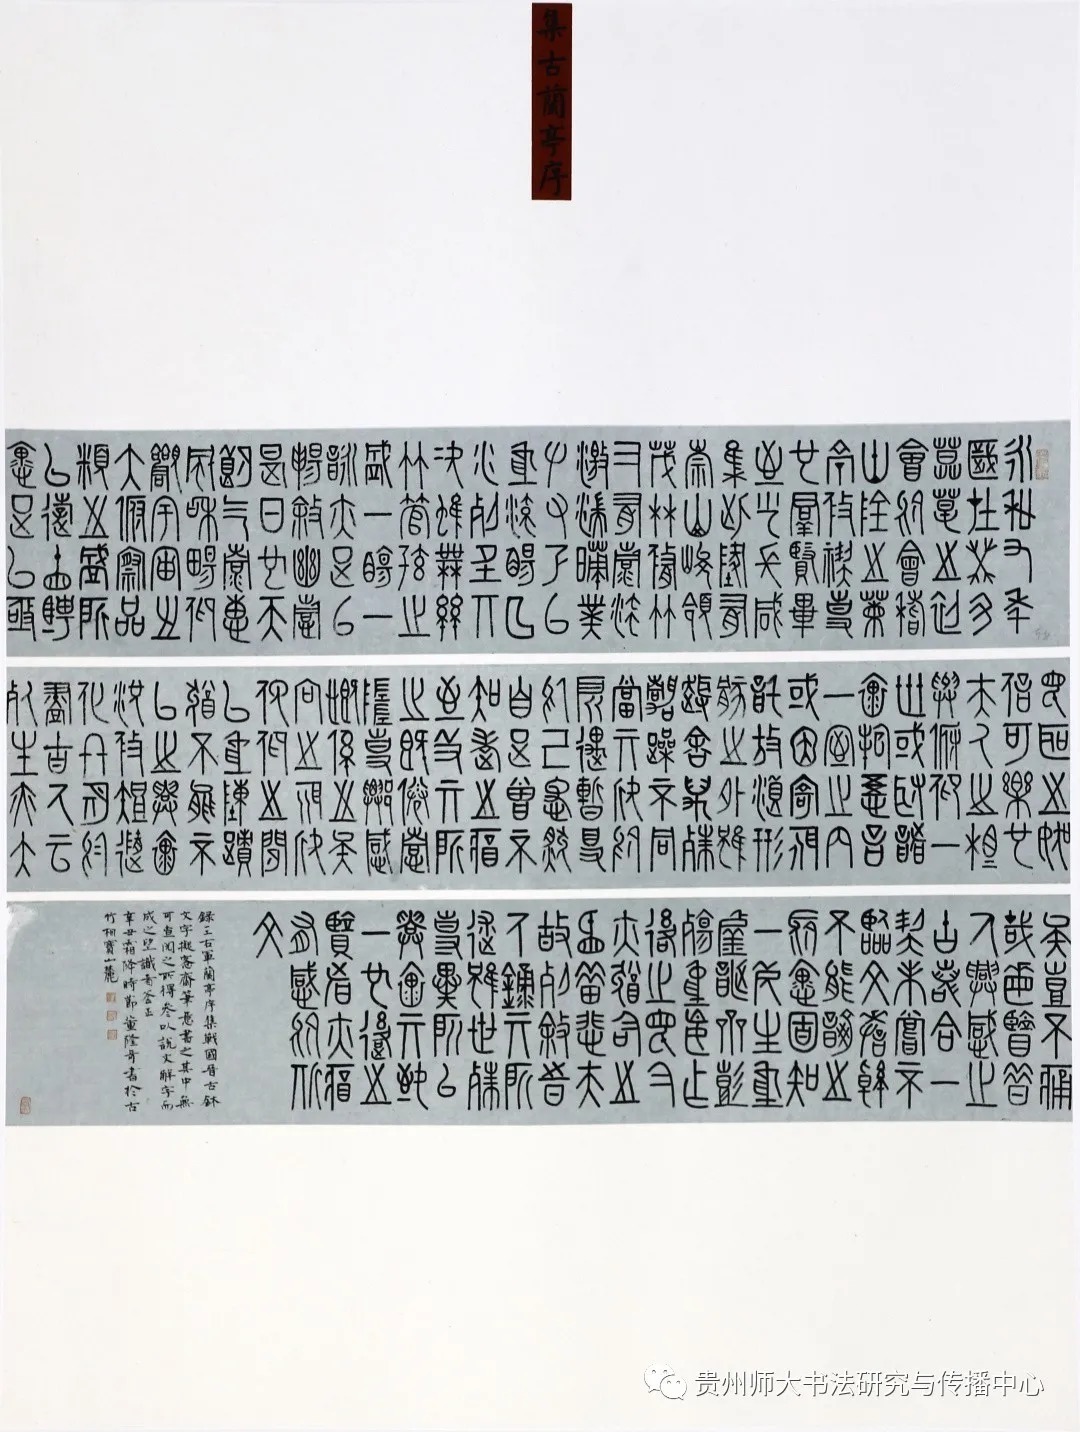 集古蘭亭序
永和九年
歲在癸丑
暮春之初
會於會稽
山陰之蘭
亭修禊事
也羣賢畢
至少長咸
集此地有
崇山峻領
茂林脩竹
又有清流
激湍暎帶
左右引以
為流觴曲
水列坐其
次雖無絲
竹管弦之
盛一觴一
詠亦足以
暢敘幽情
是日也天
朗氣清惠
風和暢仰
觀宇宙之
大俯察品
類之盛所
以遊目騁
懷足以極
視聽之娛
信可樂也
夫人之相
與俯仰一
世或取諸
懷抱悟言
一室之內
或因寄所
託放浪形
骸之外雖
趣舍萬殊
靜躁不同
當其欣於
所遇暫得
於己怏然
自足曾不
知老之將
至及其所
之既惓情
隨事遷感
慨係之矣
向之所欣
俛仰之間
以為陳跡
猶不能不
以之興懷
況脩短隨
化終期於
盡古人云
死生亦大
矣豈不痛
哉每覽昔
人興感之
由若合一
契未嘗不
臨文嗟悼
不能喻之
於懷固知
一死生為
虛誕齊彭
殤為妄作
後之視今
亦猶今之
視昔悲夫
故列敘時
人錄其所
述雖世殊
事異所以
興懷其致
一也後之
覽者亦將
有感於斯
文
錄王右軍蘭亭序集戰國晉古鉥
文字擬愙齋筆意書之其中無
可查閱之所得參以說文解字而
成之望識者鑒正
辛丑霜降時節董隆奇書於古
竹桐寶山麓
贵州师大书法研究与传播中心